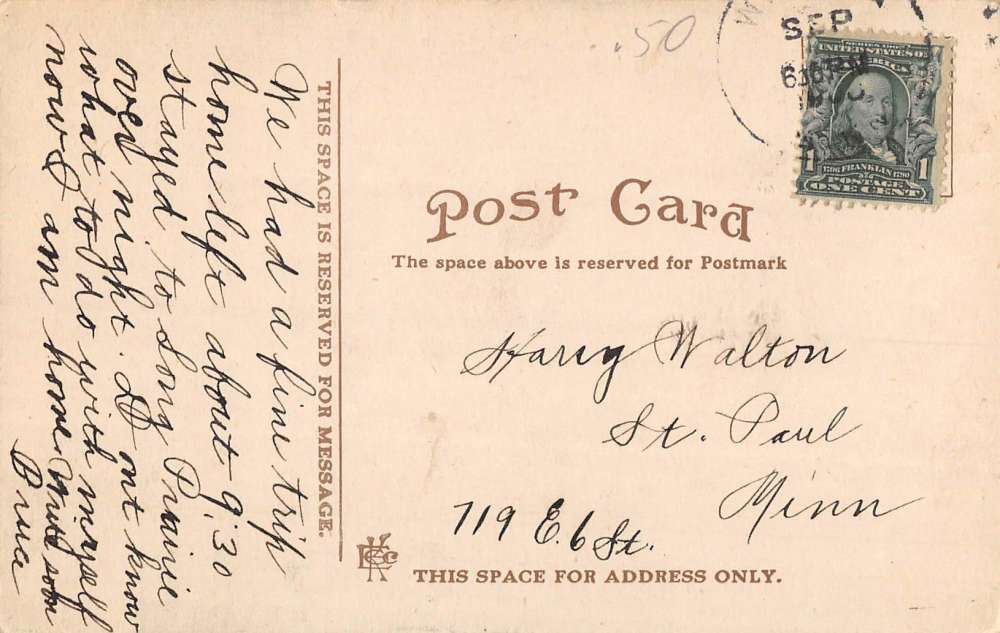 We had a fine trip
home left about 9:30
stayed to Long Prairie
over night. Dont know
what to do with myself
now I am home. soon
Bruce
THIS SPACE IS RESERVED FOR MESSAGE.
.50
SEP
630 PM
SERIES 1902
UNITED STATES OF
AMERICA
1706 FRANKLIN 1790
1 1
POSTAGE
ONE CENT
Post Card
The space above is reserved for Postmark
Harry Walton
St. Paul
Minn
719 E. 6 St.
THIS SPACE FOR ADDRESS ONLY.